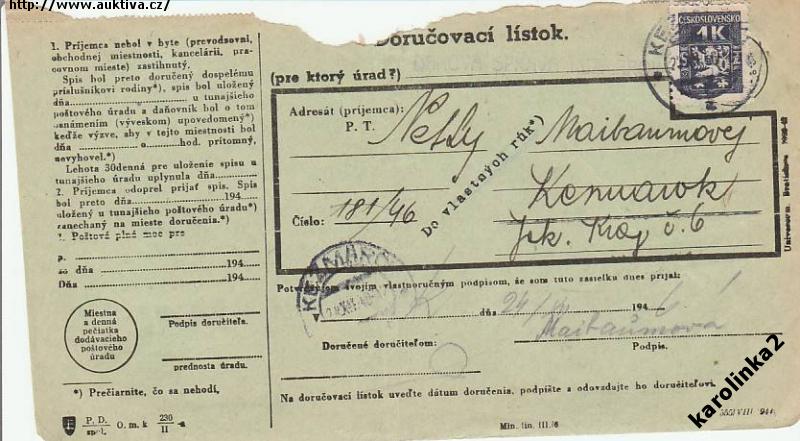 http://www.auktiva.cz/
1. Príjemca nebol v byte (prevodzovni,
obchodnej miestnosti, kancelárii, pra-
covnom mieste) zastihnutý.
Spis bol preto doručený dospelému
príslušníkovi rodiny*), spis bol uložený
dňa u tunajšieho
poštového úradu a daňovník bol o tom
oznámením (výveskom) upovedomený*)
keďže výzve, aby v tejto miestnosti bol
dňa o hod. prítomný,
nevyhovel.*)
Lehota 30denná pre uloženie spisu u
tunajšieho úradu uplynula dňa
2. Príjemca odoprel prijať spis. Spis
bol preto dňa 194
uložený u tunajšieho poštového úradu*)
zanechaný na mieste doručenia.*)
3. Poštová plná moc pre
p.
zo dňa 194
Dňa 194
Miestna
a denná
pečiatka
dodávacieho
poštového
úradu
Podpis doručiteľa.
prednosta úradu.
*) Prečiarnite, čo sa nehodí,
E P. D. spol. O. m. k 230 II
Doručovací lístok.
(pre ktorý úrad?)
ČESKOSLOVENSKO
1K
Adresát (príjemca):
P. T. Nelly Maibaumovej
Do vlastných rúk*)
Kežmarok
Číslo: 181/46
č. 6
KEŽMAROK
Potvrdzujem svojím vlastnoručným podpisom, že som túto zásielku dnes prijal:
dňa 194
Maibaumova
Doručené doručiteľom: Podpis.
Na doručovací lístok uveďte dátum doručenia, podpíšte a odovzdajte ho doručiteľovi.
Min. fin. III./6
karolinka2